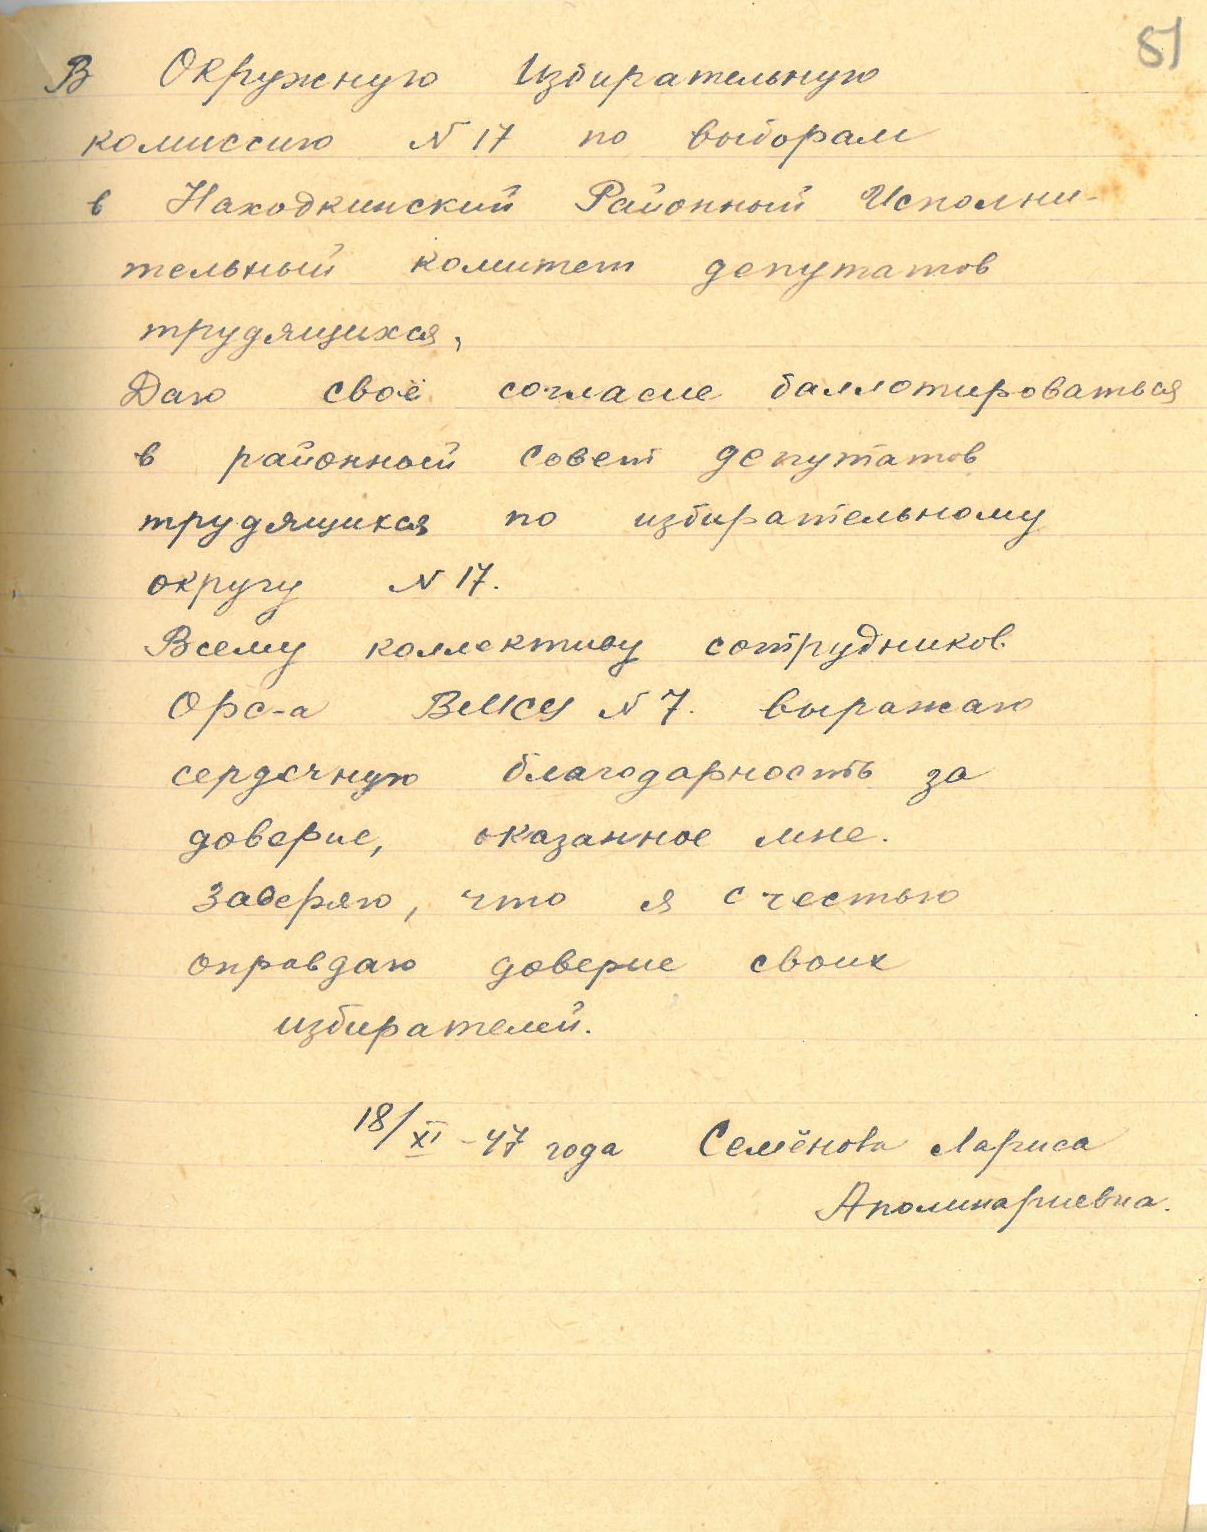 81
В Окружную Избирательную
комиссию N 17 по выборам
в Находкинский Районный Исполни-
тельный комитет депутатов
трудящихся,
Даю своё согласие баллотироваться
в районный совет депутатов
трудящихся по избирательному
округу N 17.
Всему коллективу сотрудников
Орс-а ВМСУ N 7. выражаю
сердечную благодарность за
доверие, оказанное мне.
Заверяю, что я с честью
оправдаю доверие своих
избирателей.
18/XI -47 года Семёнова Лариса
Аполинариевна.